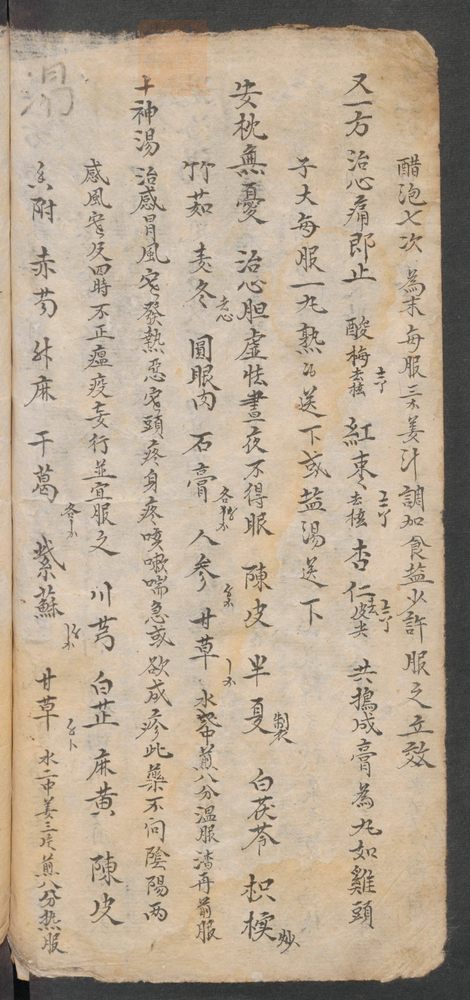 醋泡七次 為末每服三分姜汁調加食盐少許服之立效
又一方 治心痛即止 酸梅去核 紅棗去核 杏仁皮尖 共搗成膏為丸如雞頭
子大每服一丸熟 送下或盐湯送下
安枕無憂 治心胆虛怯晝夜不得眠 陳皮 半夏製 白茯苓 枳 炒
竹茹 麦冬去心 圓眼肉 石膏 人参 甘草 水 中煎八分温服渣再煎服
十神湯 治感冒風寒發熱惡寒頭疼身疼咳嗽喘急或欲成疹此藥不问陰陽两
感風寒及四時不正瘟疫妄行並宜服之 川芎 白芷 麻黄 陳皮
香附 赤芍 升麻 干葛 紫蘇 甘草 水二中姜三片煎八分热服
湯